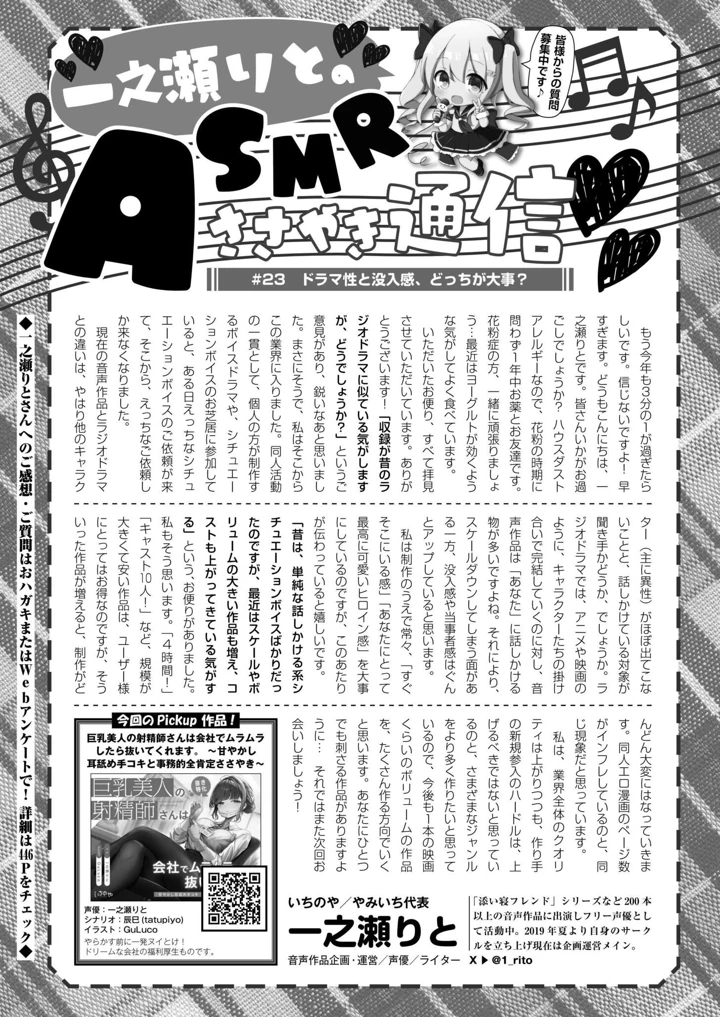 一之瀬りとの
ASMR
ささやき通信
皆様からの質問
募集中です♪
#23 ドラマ性と没入感、どっちが大事?
もう今年も3分の1が過ぎたら
しいです。信じないですよ! 早
すぎます。どうもこんにちは、一
之瀬りとです。皆さんいかがお過
ごしでしょうか? ハウスダスト
アレルギーなので、花粉の時期に
問わず1年中お薬とお友達です。
花粉症の方、一緒に頑張りましょ
う…最近はヨーグルトが効くよう
な気がしてよく食べています。
いただいたお便り、すべて拝見
させていただいています。ありが
とうございます!「収録が昔のラ
ジオドラマに似ている気がします
が、どうでしょうか?」というご
意見があり、鋭いなあと思いまし
た。まさにそうで、私はそこから
この業界に入りました。同人活動
の一貫として、個人の方が制作す
るボイスドラマや、シチュエー
ションボイスのお芝居に参加して
いると、ある日えっちなシチュ
エーションボイスのご依頼が来
て、そこから、えっちなご依頼し
か来なくなりました。
現在の音声作品とラジオドラマ
との違いは、やはり他のキャラク
ター(主に異性)がほぼ出てこな
いことと、話しかけている対象が
聞き手かどうか、でしょうか。ラ
ジオドラマでは、アニメや映画の
ように、キャラクターたちの掛け
合いで完結していくのに対し、音
声作品は「あなた」に話しかける
物が多いですよね。それにより、
スケールダウンしてしまう面があ
る一方、没入感や当事者感はぐん
とアップしていると思います。
私は制作のうえで常々、「すぐ
そこにいる感」「あなたにとって
最高に可愛いヒロイン感」を大事
にしているのですが、このあたり
が伝わっていると嬉しいです。
「昔は、単純な話しかける系シ
チュエーションボイスばかりだっ
たのですが、最近はスケールやボ
リュームの大きい作品も増え、コ
ストも上がってきている気がす
る」という、お便りがありました。
私もそう思います。「4時間!」
「キャスト10人!」など、規模が
大きくて安い作品は、ユーザー様
にとってはお得なのですが、そう
いった作品が増えると、制作がど
んどん大変にはなっていきま
す。同人エロ漫画のページ数
がインフレしているのと、同
じ現象だと思っています。
私は、業界全体のクオリ
ティは上がりつつも、作り手
の新規参入のハードルは、上
げるべきではないと思ってい
るのと、さまざまなジャンル
をより多く作りたいと思って
いるので、今後も1本の映画
くらいのボリュームの作品
を、たくさん作る方向でいく
と思います。あなたにひとつ
でも刺さる作品がありますよ
うに… それではまた次回お
会いしましょう!
今回のPickup作品!
巨乳美人の射精師さんは会社でムラムラ
したら抜いてくれます。 〜甘やかし
耳舐め手コキと事務的全肯定ささやき〜
巨乳美人の
射精師さんは
会社でムラムラ
声優:一之瀬りと
シナリオ:辰巳(tatupiyo)
イラスト:GuLuco
やらかす前に一発ヌイとけ!
ドリームな会社の福利厚生ものです。
いちのや/やみいち代表
一之瀬りと
音声作品企画・運営/声優/ライター
「添い寝フレンド」シリーズなど200本
以上の音声作品に出演しフリー声優とし
て活動中。2019年夏より自身のサーク
ルを立ち上げ現在は企画運営メイン。
X▶@1_rito
◆一之瀬りとさんへのご感想・ご質問はおハガキまたはWebアンケートで! 詳細は446Pをチェック◆